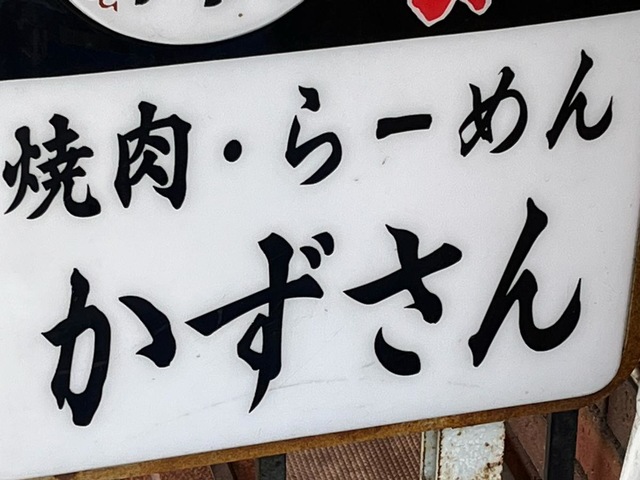 焼肉・らーめん
かずさん